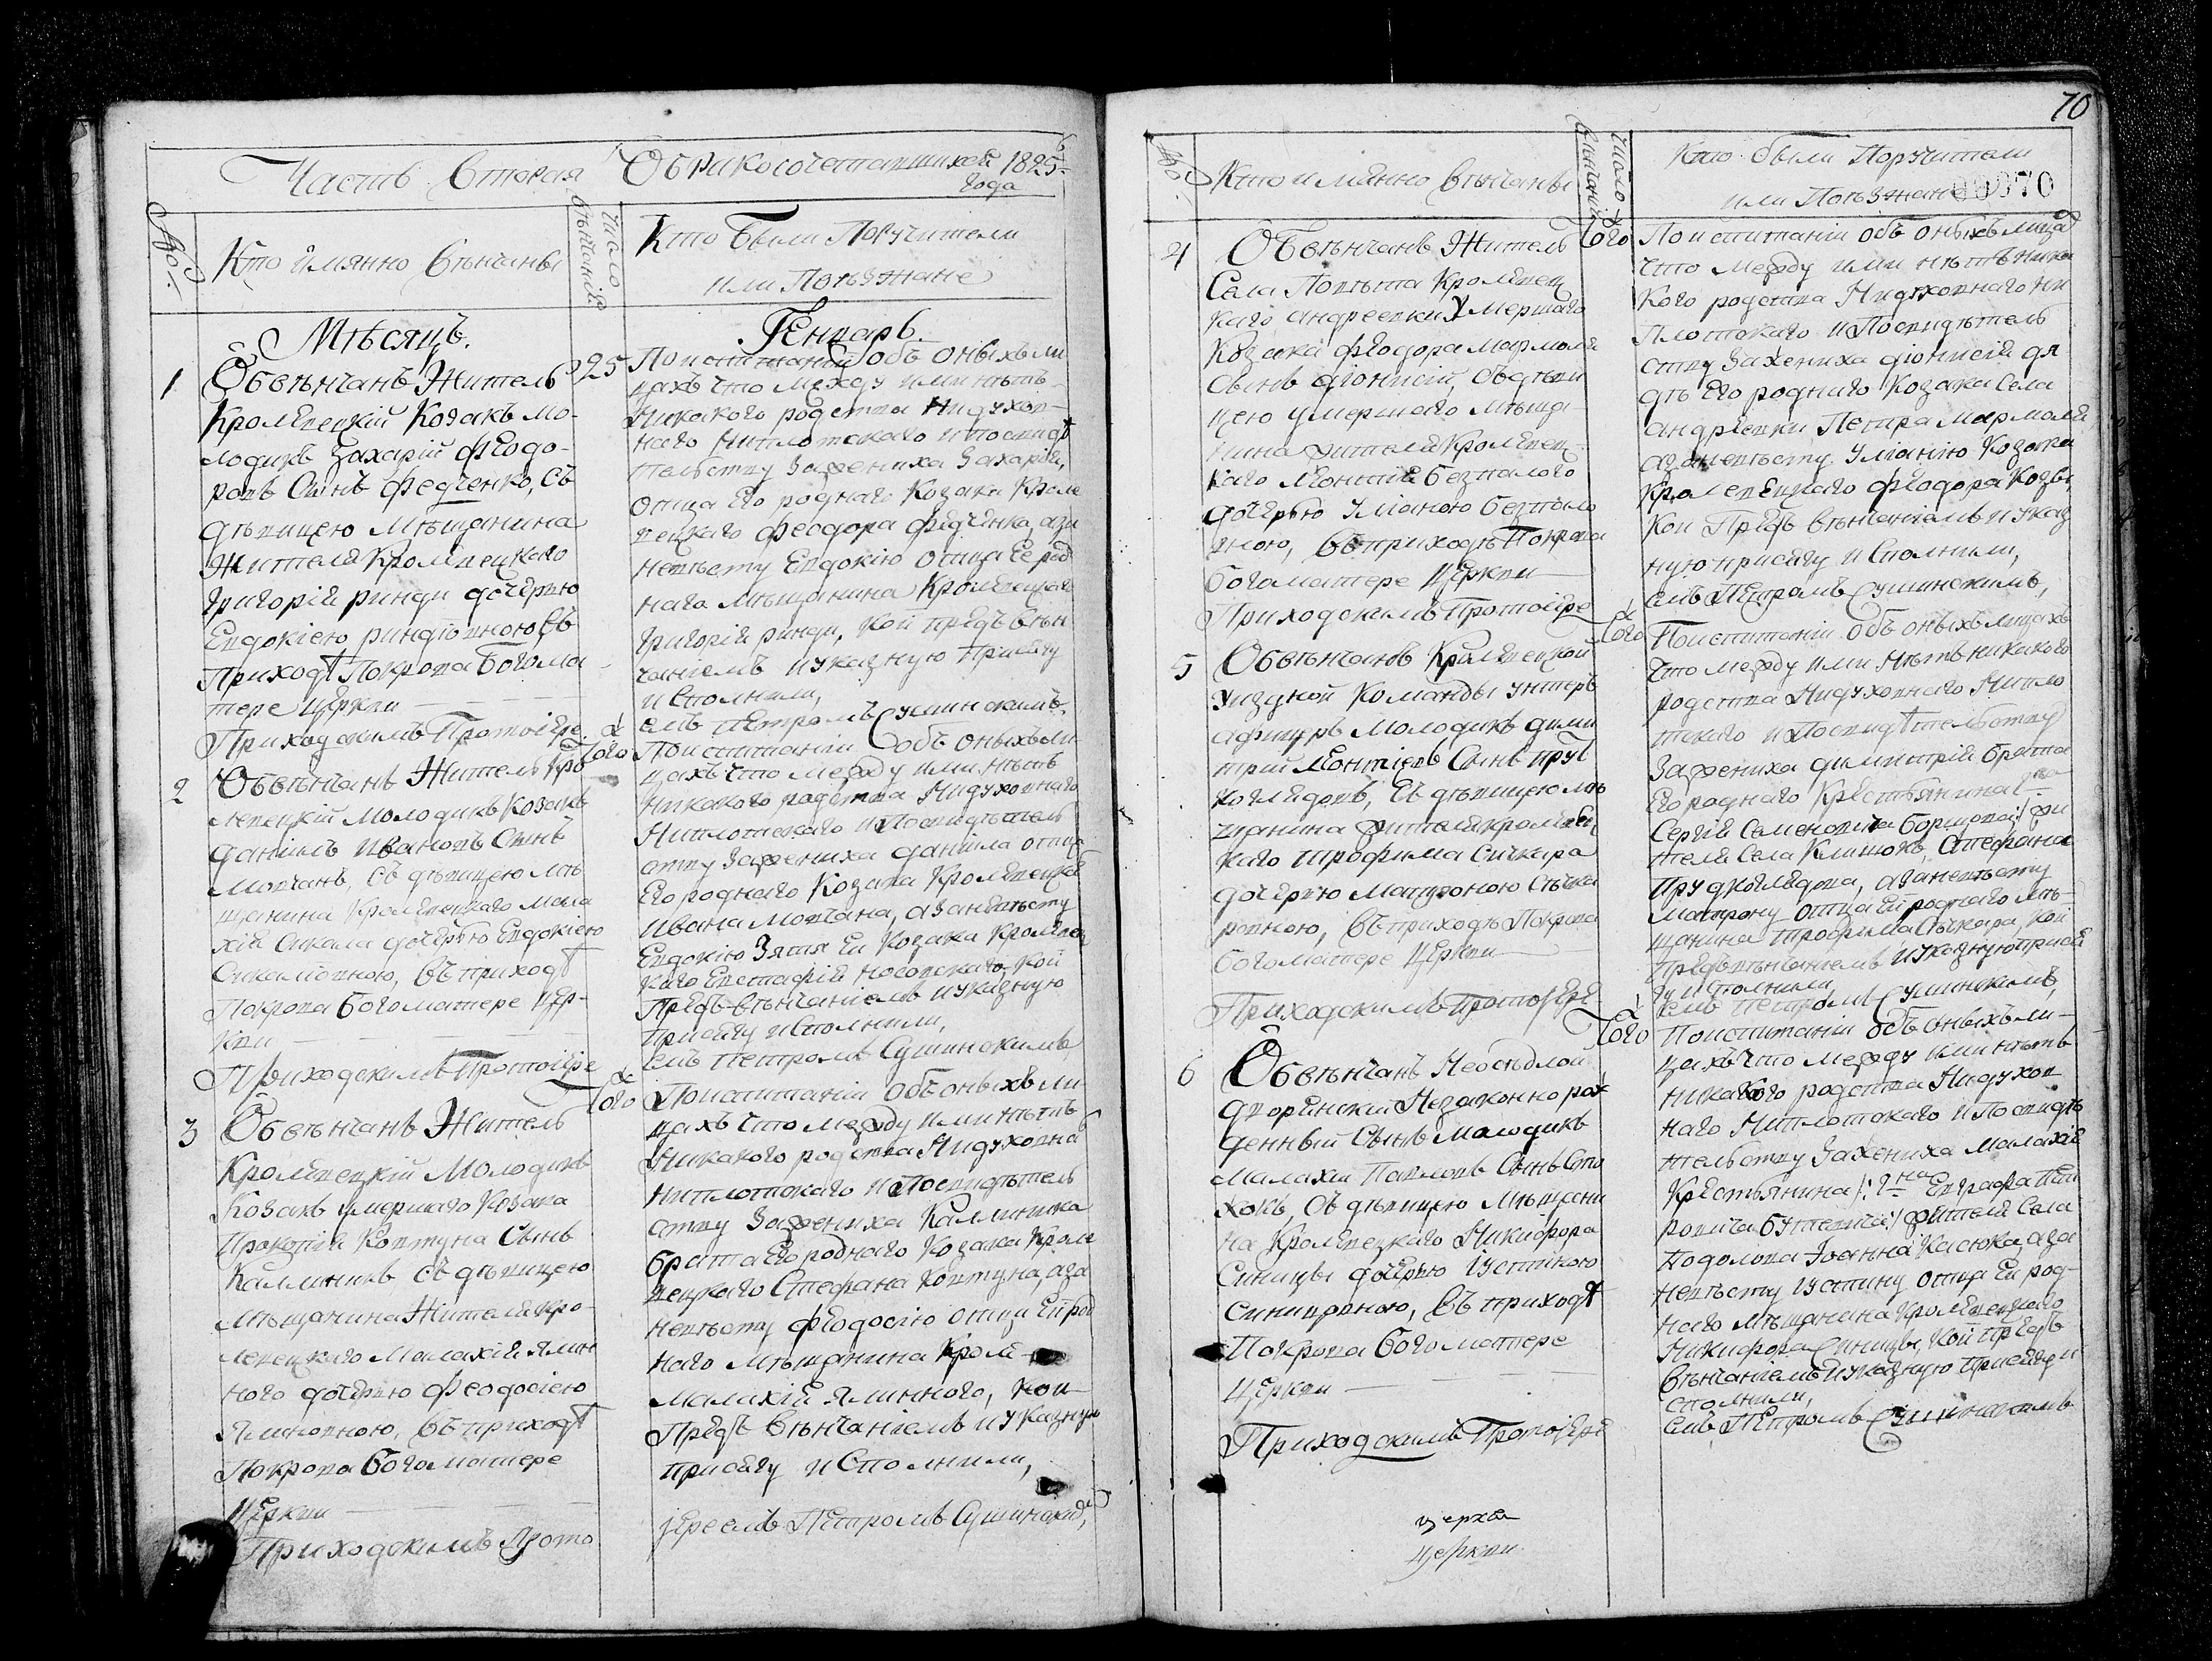 Часть Вторая О Бракосочетавшихся 1825
года
№
Кто имянно венчаны
Число
венчаній
Кто Были Поручители
или Поѣзжане
Мѣсяцъ.
Генварь.
1
Обвѣнчанъ Житель
Кролевецкій Козакъ мо-
лодикъ Захарій Феодо-
ровъ Сынъ Федченко, съ
дѣвицею мѣщанина
Жителя Кролевецкаго
Григорія ринди дочерью
Евдокіею риндіовною въ
Приходѣ Покрова Богома
тере Церкви
Приходскимъ Протоіере
25
По испитаніи объ оныхъ ли
цахъ что между ими нѣтъ
Никакого родства Нидухов-
наго Ниплотскаго и посвидѣ
тельству За жениха Захарія,
отца Его роднаго Козака Кроле
вецкаго Феодора Федченка, аза
невѣсту Евдокію отца Ее род
наго мѣщанина Кролевецкаго
Григорія ринди, кои предъ вѣн
чаніемъ и указную Присягу
и Сполнили,
емъ Петромъ Сушинскимъ.
2
Обвѣнчанъ Житель Кро
левецкій молодикъ Козакъ
Даніилъ Ивановъ Сынъ
Мовчанъ, съ дѣвицею мѣ
щанина Кролевецкаго Мала
хія Сикала дочерью Евдокіею
Сикаліовною, въ приходѣ
Покрова Богоматере Цер-
кви
Приходскимъ Протоіере
Того
По испитаніи объ оныхъ ли
цахъ что между ими нѣтъ
Никакого родства Нидуховнаго
Ниплотскаго и Посвидѣтель
ству За жениха Даніила отца
Его роднаго Козака Кролевецкаго
Ивана Мовчана, а за невѣсту
Евдокію Зятя Ея Козака Кролевец
каго Евстафія Носовскаго, кои
Предъ вѣнчаніемъ и указную
Присягу и Сполнили,
емъ Петромъ Сушинскимъ,
3
Обвѣнчанъ Житель
Кролевецкій Молодикъ
Козакъ умершаго Козака
Прокопія Ковтуна Сынъ
Каллиникъ съ дѣвицею
Мѣщанина Жителя Кро-
левецкаго Малахія Ялин
ного дочерью Феодосіею
Ялиновною, въ приходѣ
Покрова Богоматере
Церкви
Приходскимъ Прото
Того
По испитаніи объ оныхъ ли-
цахъ что между ими нѣтъ
Никакого родства Нидуховна
Ниплотскаго и Посвидѣтель
ству За жениха Каллиника
брата Его роднаго Козака Кроле
вецкаго Стефана Ковтуна, аза
невѣсту Феодосію отца Ея род
наго Мѣщанина Кролев
Малахія Ялинного, кои
Предъ вѣнчаніемъ и указную
присягу и Сполнили,
іереемъ Петромъ Сушинским,
70
№
Кто имянно вѣнчаны
Число
вѣнчаній
Кто были Поручители
или Поѣзжане
00070
4
Обвѣнчанъ Житель
Села Повита Кролевец
каго Андреевки Умершаго
Козака Феодора Мармоля
Сынъ Діонисій, съ дѣви
цею умершаго мѣща-
нина жителя Кролевец-
каго Леонтія Безпалого
дочерью Уліаною Безпало
вною, въ приходѣ Покрова
Богоматере Церкви
Приходскимъ Протоіере
Того
По испитаніи объ оныхъ лица
что между ими нѣтъ ника
кого родства Нидуховнаго ни
плотскаго и Посвидѣтель
ству За жениха Діонисія дя
дѣ Его роднаго Козака Села
Андреевки Петра Мармоля
а за невѣсту Уліанию Козака
Кролевецкаго Феодора Козы,
кои Предъ вѣнчаніемъ и указ
ную присягу и Сполнили,
емъ Петромъ Сушинскимъ,
5
Обвѣнчанъ Кролевецкой
уездной Команды унтеръ
афицеръ Молодикъ Дими
трій Леонтіевъ Сынъ Пруд
коглядовъ, съ дѣвицею мѣ
щанина жителя Кролевец
каго Трофима Сичкара
дочерью Матроною Сичка
ровною, въ приходѣ Покрова
Богоматере Церкви
Приходскимъ Протоіере
Того
По испитаніи объ оныхъ лицахъ
что между ими Нѣтъ никакого
родства Нидуховнаго Нипло
тскаго и Посвидѣтельству
За жениха Димитрія брата
Его роднаго Крестьянина
Сергія Семеновича Борщова жи
теля Села Клишокъ, Стефана
Прудкогляда, а за невѣсту
Матрону отца Ея роднаго мѣ-
щанина Трофима Сичкара, кои
Предъ вѣнчаніемъ и указную прися
гу и Сполнили,
емъ Петромъ Сушинскимъ,
6
Обвѣнчанъ Неосѣдлой
дворянскій Незаконно рож
денный Сынъ Молодикъ
Малахій Павловъ Сынъ
хокъ, съ дѣвицею Мѣщани
на Кролевецкаго Никифора
Синицы дочерью Іустиною
Синицовною, въ приходѣ
Покрова Богоматере
Церкви
Приходскимъ Протоіере
Того
По испитаніи объ оныхъ ли-
цахъ что между ими нѣтъ
никакого родства Нидухов
наго Ниплотскаго и Посвидѣ
тельству За жениха Малахія
Крестьянина Евграфа Пет
ровича жителя Села
Подолова Іоанна Касюка, а за
невѣсту Іустину отца Ея род-
наго мѣщанина Кролевецкаго
Никифора Синицы, кои Предъ
вѣнчаніемъ и указную Присягу и
сполнили,
емъ Петромъ Сушинскимъ
церкви
церкви